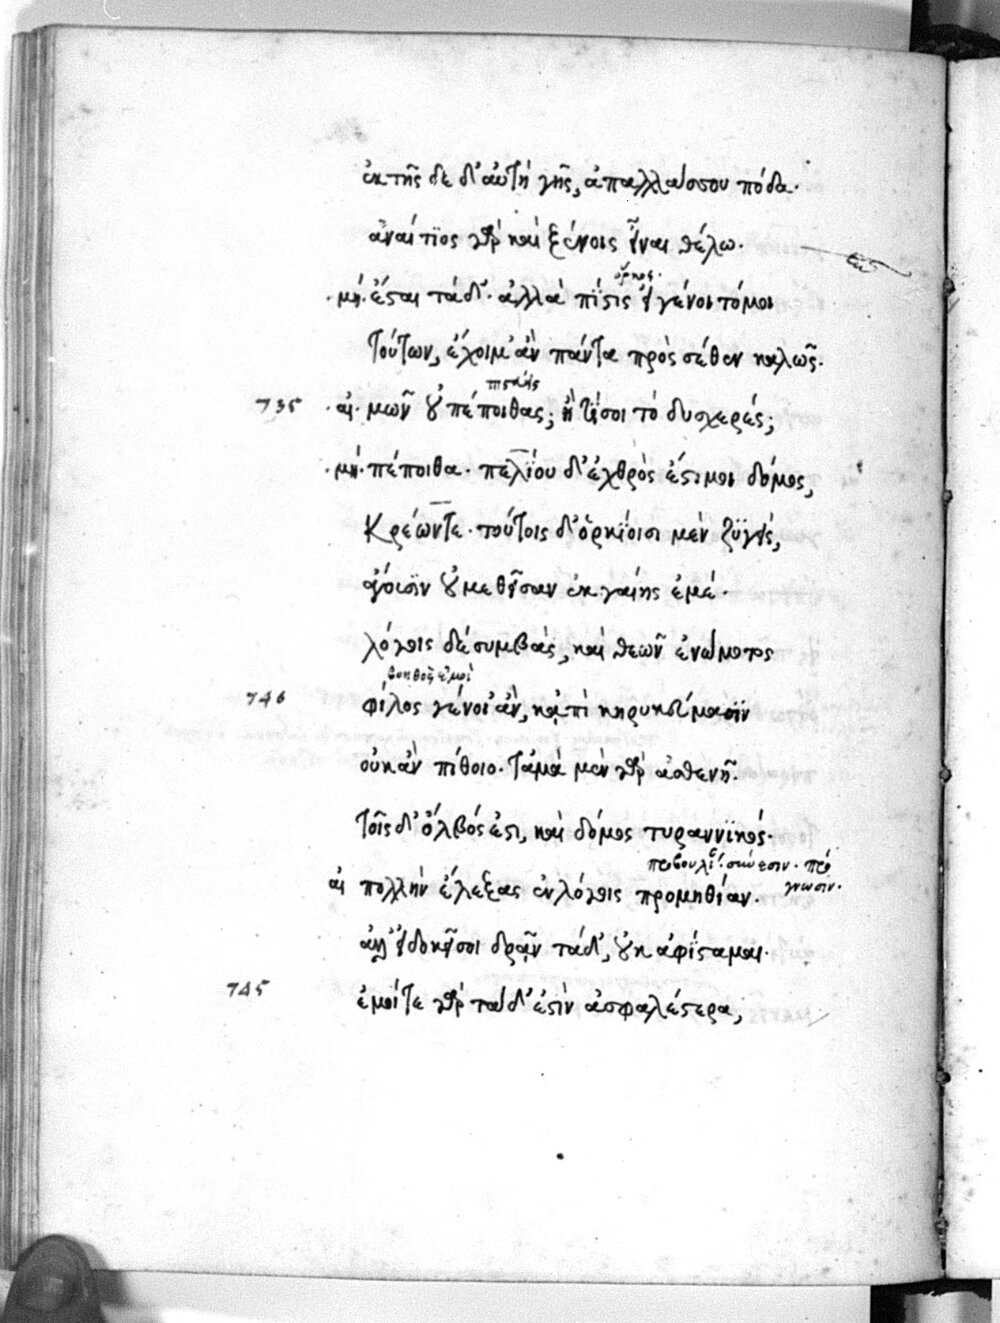 ἐκ τῆς δε δ' αὐτὴ γῆς, ἀπαλλάσσου πόδα·
ἀναίτϊος γὰρ καὶ ξένοις εἶναι θέλω·
·μή· ἔσται τάδ'· ἀλλὰ πίστις εἰ γένοιτό μοι
ὅρκος·
τούτων, ἔχοιμ' ἂν πάντα πρὸς σέθεν καλῶς·
πιστεύεις
735 ·αἰ· μῶν οὐ πέποιθας; ἢ τί σοι τὸ δυσχερές;
·μή· πέποιθα· πελίου δ' ἐχθρὸς ἐστι μοι δόμος,
Κρέων τε· τούτοις δ' ὁρκίοισι μὲν ζϋγεὶς,
ἄγουσϊν οὐ μεθεῖσαν ἐκ γαίης ἐμέ·
λόγοις δὲ συμβὰς, καὶ θεῶν ἐνώμοτος
βοηθὸς ἐμοὶ
740 φίλος γένοι' ἂν, κἀπὶ κηρυκεύμασϊν
οὐκ ἂν πίθοιο· τἀμὰ μὲν γὰρ ἀσθενῆ·
τοῖς δ' ὄλβός ἐστι, καὶ δόμος τυραννϊκός·
αἰ πολλὴν ἔλεξας ἐν λόγοις προμηθίαν·
ἀλλ' εἰ δοκεῖ σοι δρᾶν τάδ', οὐκ ἀφίσταμαι·
745 ἐμοί τε γὰρ τάδ' ἐστὶν ἀσφαλέστερα,